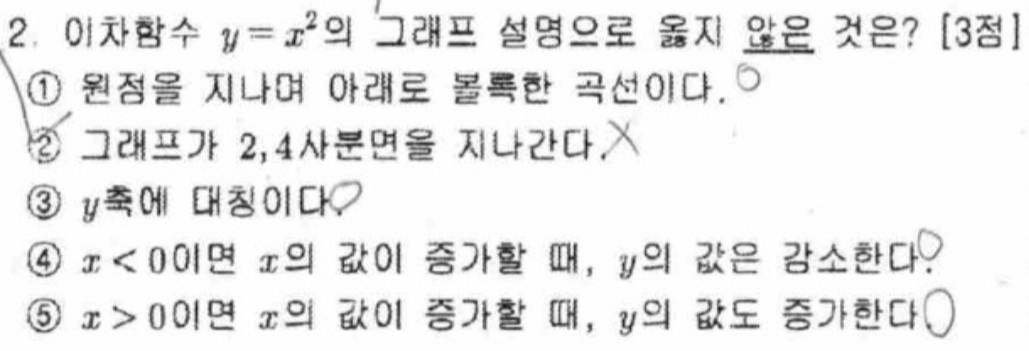 2. 이차함수 y=x²의 그래프 설명으로 옳지 않은 것은? [3점]
① 원점을 지나며 아래로 볼록한 곡선이다. ○
② 그래프가 2, 4사분면을 지나간다. ×
③ y축에 대칭이다. ○
④ x<0이면 x의 값이 증가할 때, y의 값은 감소한다. ○
⑤ x>0이면 x의 값이 증가할 때, y의 값도 증가한다. ○